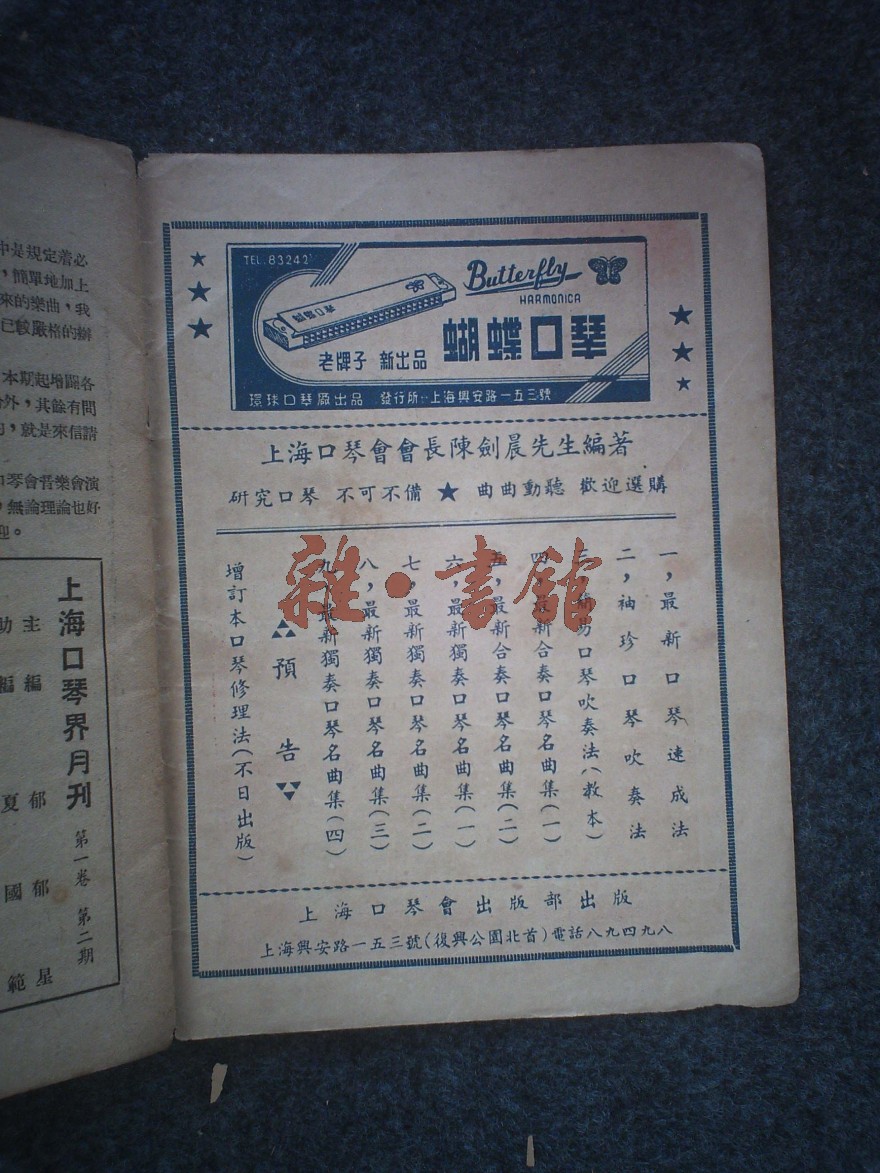 TEL. 83242
Butterfly
HARMONICA
蝴蝶口琴
老牌子 新出品 蝴蝶口琴
環球口琴廠出品 發行所:上海興安路一五三號
上海口琴會會長陳劍晨先生編著
研究口琴 不可不備 ★ 曲曲動聽 歡迎選購
一,最新口琴速成法
二,袖珍口琴吹奏法
三,簡易口琴吹奏法(教本)
四,最新合奏口琴名曲集(一)
五,最新合奏口琴名曲集(二)
六,最新獨奏口琴名曲集(一)
七,最新獨奏口琴名曲集(二)
八,最新獨奏口琴名曲集(三)
九,最新獨奏口琴名曲集(四)
預告
增訂本口琴修理法(不日出版)
上海口琴會出版部出版
上海興安路一五三號(復興公園北首)電話八九四九八
雜·書館
中是規定着必
,簡單地加上
來的樂曲,我
已較嚴格的辦
本期起增闢各
外,其餘有問
,就是來信請
口琴會音樂會演
,無論理論也好
迎。
上海口琴界月刊 第一卷 第二期
主編 郁郁星
夏國範